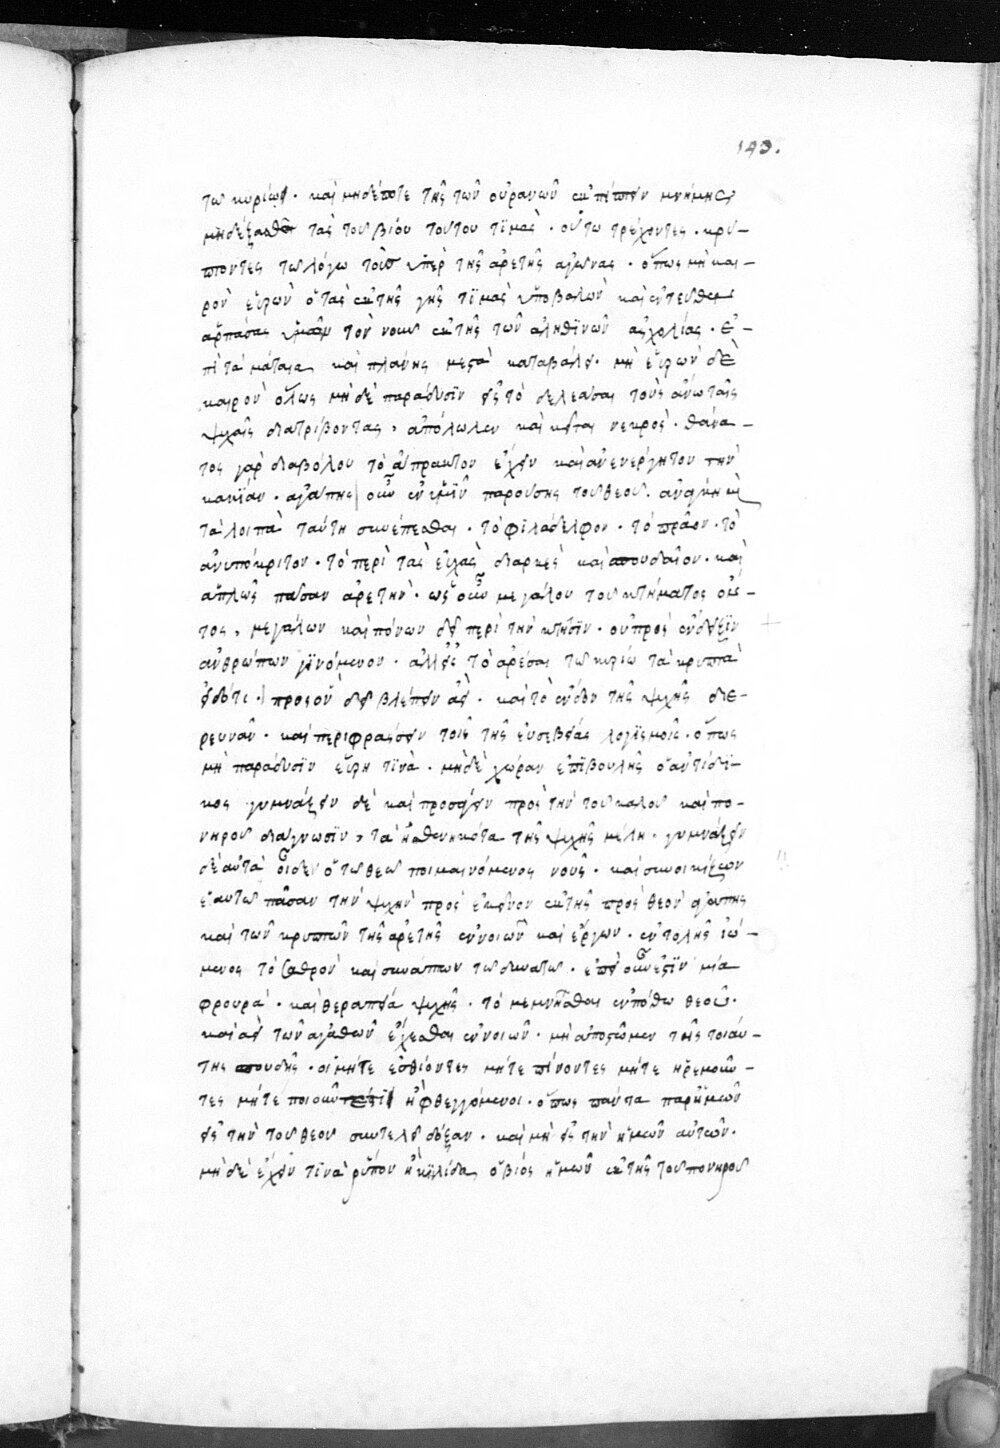 143.
τῶ κυρίω. καὶ μηδέποτε τῆς τῶν οὐρανῶν ἐκπίπτειν μνήμης
μὴ δέξασθαι τὰς τοῦ βίου τούτου τιμὰς. οὕτω τρέχοντες. κρύ-
πτοντες τῶ λόγω τοὺς ὑπὲρ τῆς ἀρετῆς ἀγῶνας. ὅπως μὴ και-
ρὸν εὑρὼν ὁ τὰς ἐκ τῆς γῆς τιμὰς ὑποβαλὼν καὶ ἐντεῦθεν
ἁρπάσας ὑμῶν τὸν νοῦν ἐκ τῆς τῶν ἀληθινῶν ἀσχολίας. ἐ-
πὶ τὰ μάταια καὶ πλάνης μεστὰ καταβάλη. μὴ εὑρὼν δὲ
καιρὸν ὅλως μὴ δὲ παράδυσιν εἰς τὸ δελεᾶσαι τοὺς ἄνω ταῖς
ψυχαῖς διατρίβοντας, ἀπόλωλεν καὶ κεῖται νεκρὸς. θάνα-
τος γὰρ διαβόλου τὸ ἄπρακτον ἔχειν καὶ ἀνενέργητον τὴν
κακίαν. ἀγάπης οὖν ἐν ὑμῖν παρούσης τοῦ θεοῦ. ἀνάγκη καὶ
τὰ λοιπὰ ταύτη συνέπεσθαι. τὸ φιλάδελφον. τὸ πρᾶον. τὸ
ἀνυπόκριτον. τὸ περὶ τὰς εὐχὰς διαρκὲς καὶ σπουδαῖον. καὶ
ἁπλῶς πᾶσαν ἀρετὴν. ὡς οὖν μεγάλου τοῦ κτήματος ὄν-
τος, μεγάλων καὶ πόνων δεῖ περὶ τὴν κτῆσιν. οὐ πρὸς ἔνδειξιν
ἀνθρώπων γινόμενον. ἀλλ' εἰς τὸ ἀρέσαι τῶ κυρίω τὰ κρυπτὰ
εἰδότι. πρὸς ὃν δεῖ βλέπειν ἀεὶ. καὶ τὸ ἔνδον τῆς ψυχῆς διε-
ρευνᾶν. καὶ περιφράσσειν τοῖς τῆς εὐσεβείας λογισμοῖς. ὅπως
μὴ παράδυσιν εὕρη τινὰ. μηδὲ χώραν ἐπιβουλῆς ὁ ἀντίδι-
κος γυμνάζειν δὲ καὶ προσάγειν πρὸς τὴν τοῦ καλοῦ καὶ πο-
νηροῦ διάγνωσιν, τὰ ἠσθενηκότα τῆς ψυχῆς μέλη. γυμνάζειν
δὲ αὐτὰ οἶδεν ὁ τῶ θεῶ ποιμαινόμενος νοῦς. καὶ συνοικίζων
ἑαυτῶ πᾶσαν τὴν ψυχὴν πρὸς ἐκεῖνον ἐκ τῆς πρὸς θεὸν ἀγάπης
καὶ τῶν κρυπτῶν τῆς ἀρετῆς ἐννοιῶν καὶ ἔργων. ἐντολῆς ἰώ-
μενος τὸ σαθρὸν καὶ συνάπτων τῶ δυνατῶ. ἐπεὶ οὖν ἐστὶν μία
φρουρὰ. καὶ θεραπεία ψυχῆς. τὸ μεμνῆσθαι ἐν πόθω θεοῦ.
καὶ ἀεὶ τῶν ἀγαθῶν ἔχεσθαι ἐννοιῶν. μὴ ἀποστῶμεν τῆς τοιαύ-
της σπουδῆς. οἱ μήτε ἐσθίοντες μήτε πίνοντες μήτε ἠρεμοῦν-
τες μήτε ποιοῦντές τι ἢ φθεγγόμενοι. ὅπως πάντα παρ' ἡμῶν
εἰς τὴν τοῦ θεοῦ συντελῆ δόξαν. καὶ μὴ εἰς τὴν ἡμῶν αὐτῶν.
μὴ δὲ ἔχειν τινὰ ῥύπον ἢ κηλῖδα ὁ βίος ἡμῶν ἐκ τῆς τοῦ πονηροῦ